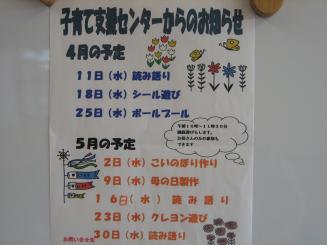 子育て支援センターからのお知らせ
4月の予定
11日（水）読み語り
18日（水）シール遊び
25日（水）ボールプール
午前10時～11時30分
5月の予定
2日（水）こいのぼり作り
9日（水）母の日製作
16日（水）読み語り
23日（水）クレヨン遊び
30日（水）読み語り
お問い合せ先